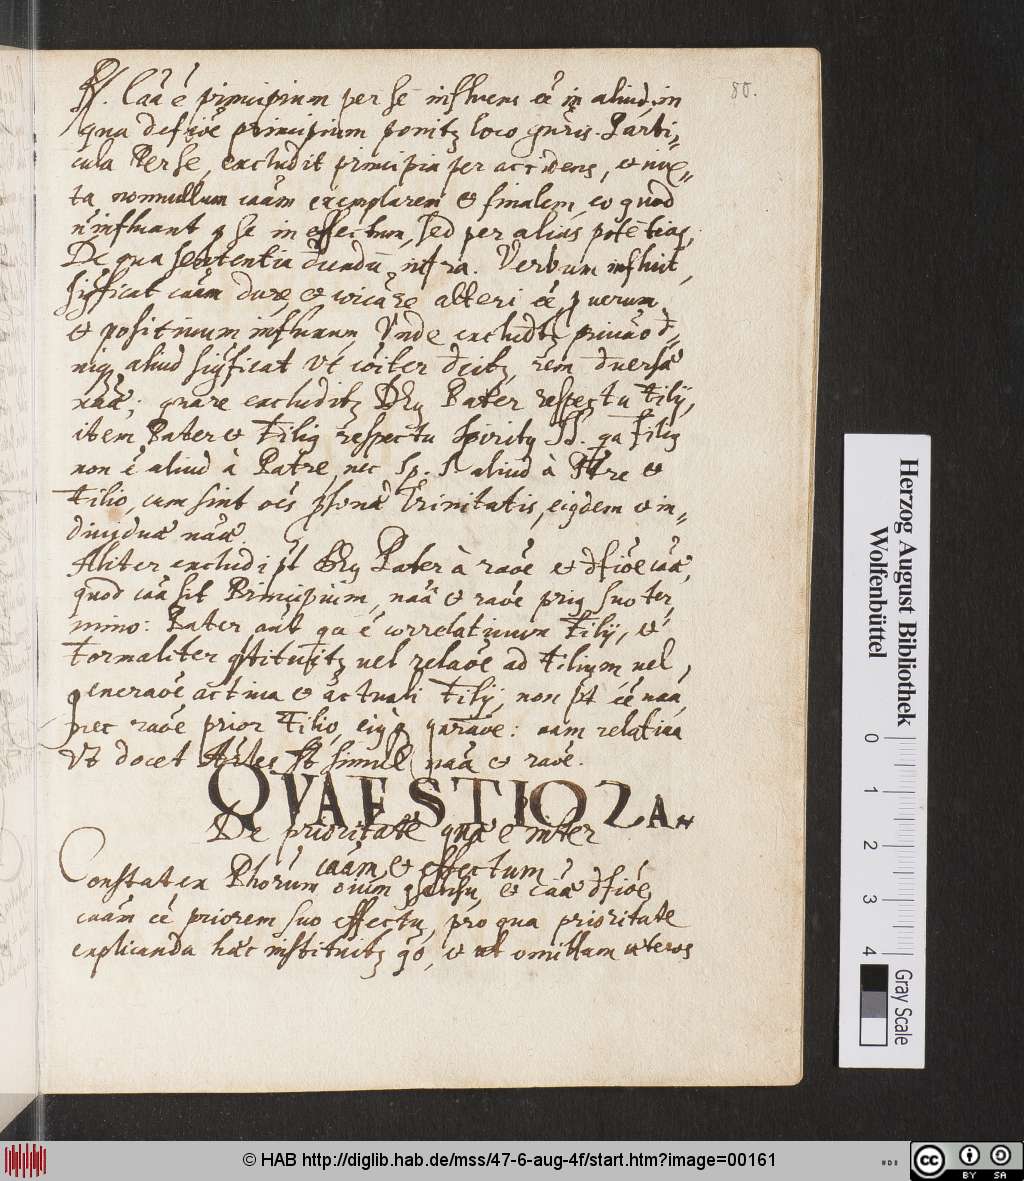 R. Caã ē principium per se influens eē in aliud, in
qua defiōe principium ponitz loco gnris. Parti=
cula Per se, excludit principia per accidens, et
ta nonnullum caãm exemplarem et finalem, eo quod
n influant p se in effectum, sed per alias potētias,
De qua sententia dicendū infra. Verbum influit,
sigficat caãm dare, et coicãre alteri eē, p verum
et positivum influxum, Unde excludtz privaõ
aliud sigficat ut coiter dcitz, rem dversæ
naæ; quare excluditz Ds Pater respectu Filij,
item Pater et Filig respectu Spirity Sti. qa Filig
non ē aliud à Patre, nec Sp. S aliud à Ptre et
Filio, cum sint oēs psonæ Trinitatis, eigdem et in=
dividuæ naæ.
Aliter excludi pt Ds Pater à raõe et dfiõe caæ,
quod caã sit Principium, naã et raõe prig suo ter
mino: Pater aut qa ē correlativum Filij, et
Formaliter qstituitz vel relaõe ad Filium, vel
generaõe activa et actuali Filij, non pt eē naã,
nec raõe prior Filio, eigq gnraõe: nam relativa
Ut docet Arles st simul naã et raõe.
QVAESTIO 2A.
De prioritate quæ ē inter
caãm et effectum
Constat ex Phorum oium qsensu, et caæ dfiõe,
caãm eē priorem suo effectu, pro qua prioritate
explicanda hæc instituitz qo, et ut omittam
80.
Herzog August Bibliothek
Wolfenbüttel
0 1 2 3 4
Gray Scale
© HAB http://diglib.hab.de/mss/47-6-aug-4f/start.htm?image=00161
cc BY SA